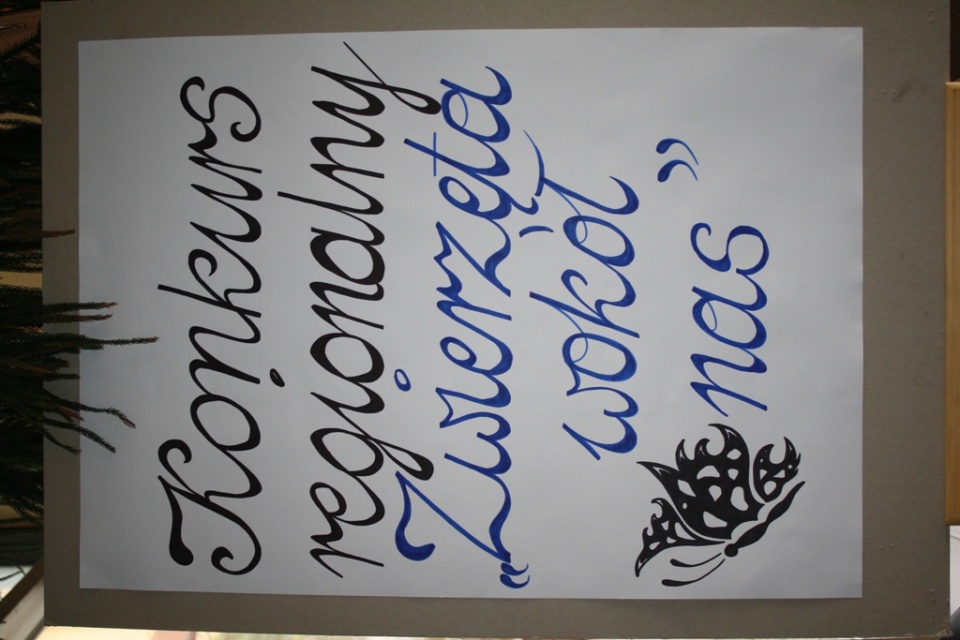 Konkurs
regionalny
„Zwierzęta
wokół
nas”